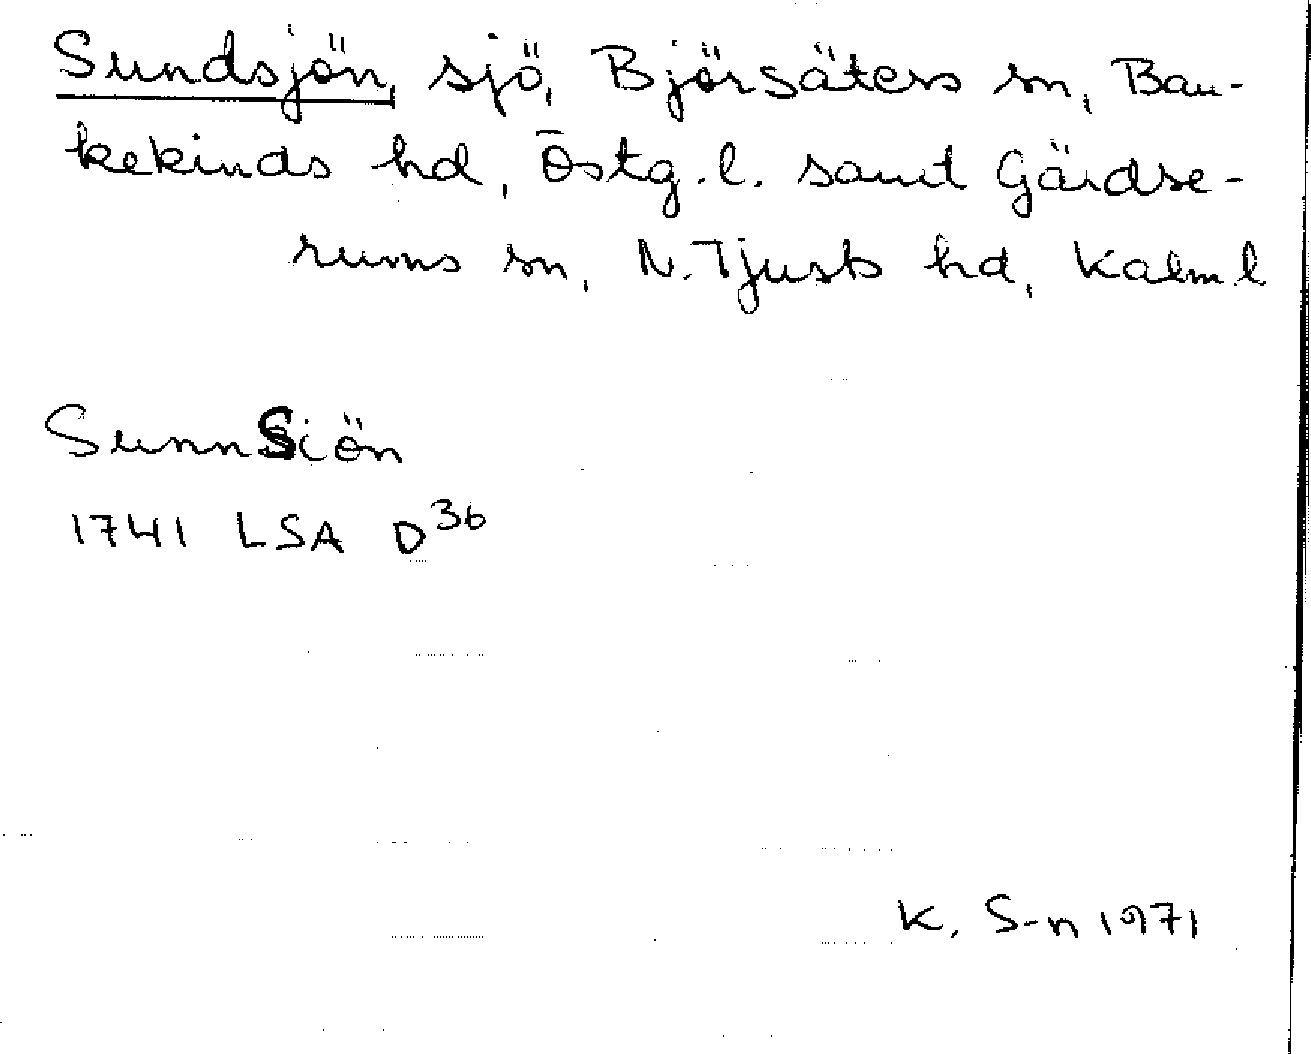 Sundsjön, sjö, Björsäters sn, Ban-
kekinds hd, Östg.l. samt Gärdse-
rums sn, N. Tjusts hd, Kalm.l
SunnSiön
1741 LSA D36
K. S-n 1971